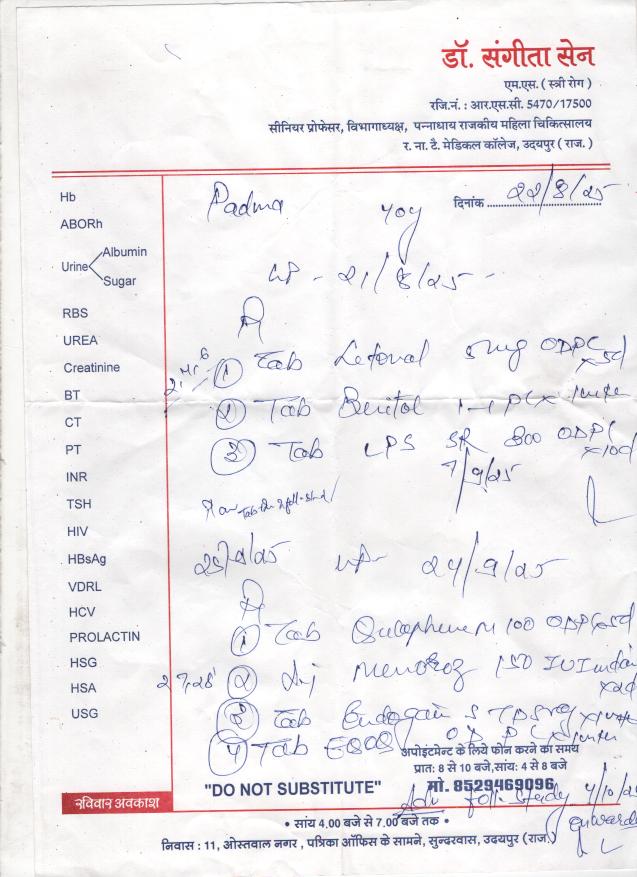 डॉ. संगीता सेन
एम.एस. ( स्त्री रोग )
रजि.नं. : आर.एस.सी. 5470/17500
सीनियर प्रोफेसर, विभागाध्यक्ष, पन्नाधाय राजकीय महिला चिकित्सालय
र. ना. टै. मेडिकल कॉलेज, उदयपुर ( राज. )
Hb
ABORh
Urine
Albumin
Sugar
RBS
UREA
Creatinine
BT
CT
PT
INR
TSH
HIV
HBsAg
VDRL
HCV
PROLACTIN
HSG
HSA
USG
रविवार अवकाश
Padma 40y दिनांक 22/8/25
LP - 21/8/25 -
① Tab 5mg ODPC x 5d
② Tab 1-1 PC x
③ Tab LPS SR 800 ODPC x10d
7/9/25
25/9/25 LP 24/9/25
① Tab M 100 ODPC x 5d
27, 28 ② Inj 150 IU
③ Tab
④ Tab OD PC x
अपोइंटमेन्ट के लिये फोन करने का समय
प्रात: 8 से 10 बजे,सांय: 4 से 8 बजे
"DO NOT SUBSTITUTE" मो. 8529469096
Adv foll. study 4/10/25
onwards
• सांय 4.00 बजे से 7.00 बजे तक •
निवास : 11, ओस्तवाल नगर , पत्रिका ऑफिस के सामने, सुन्दरवास, उदयपुर (राज.)